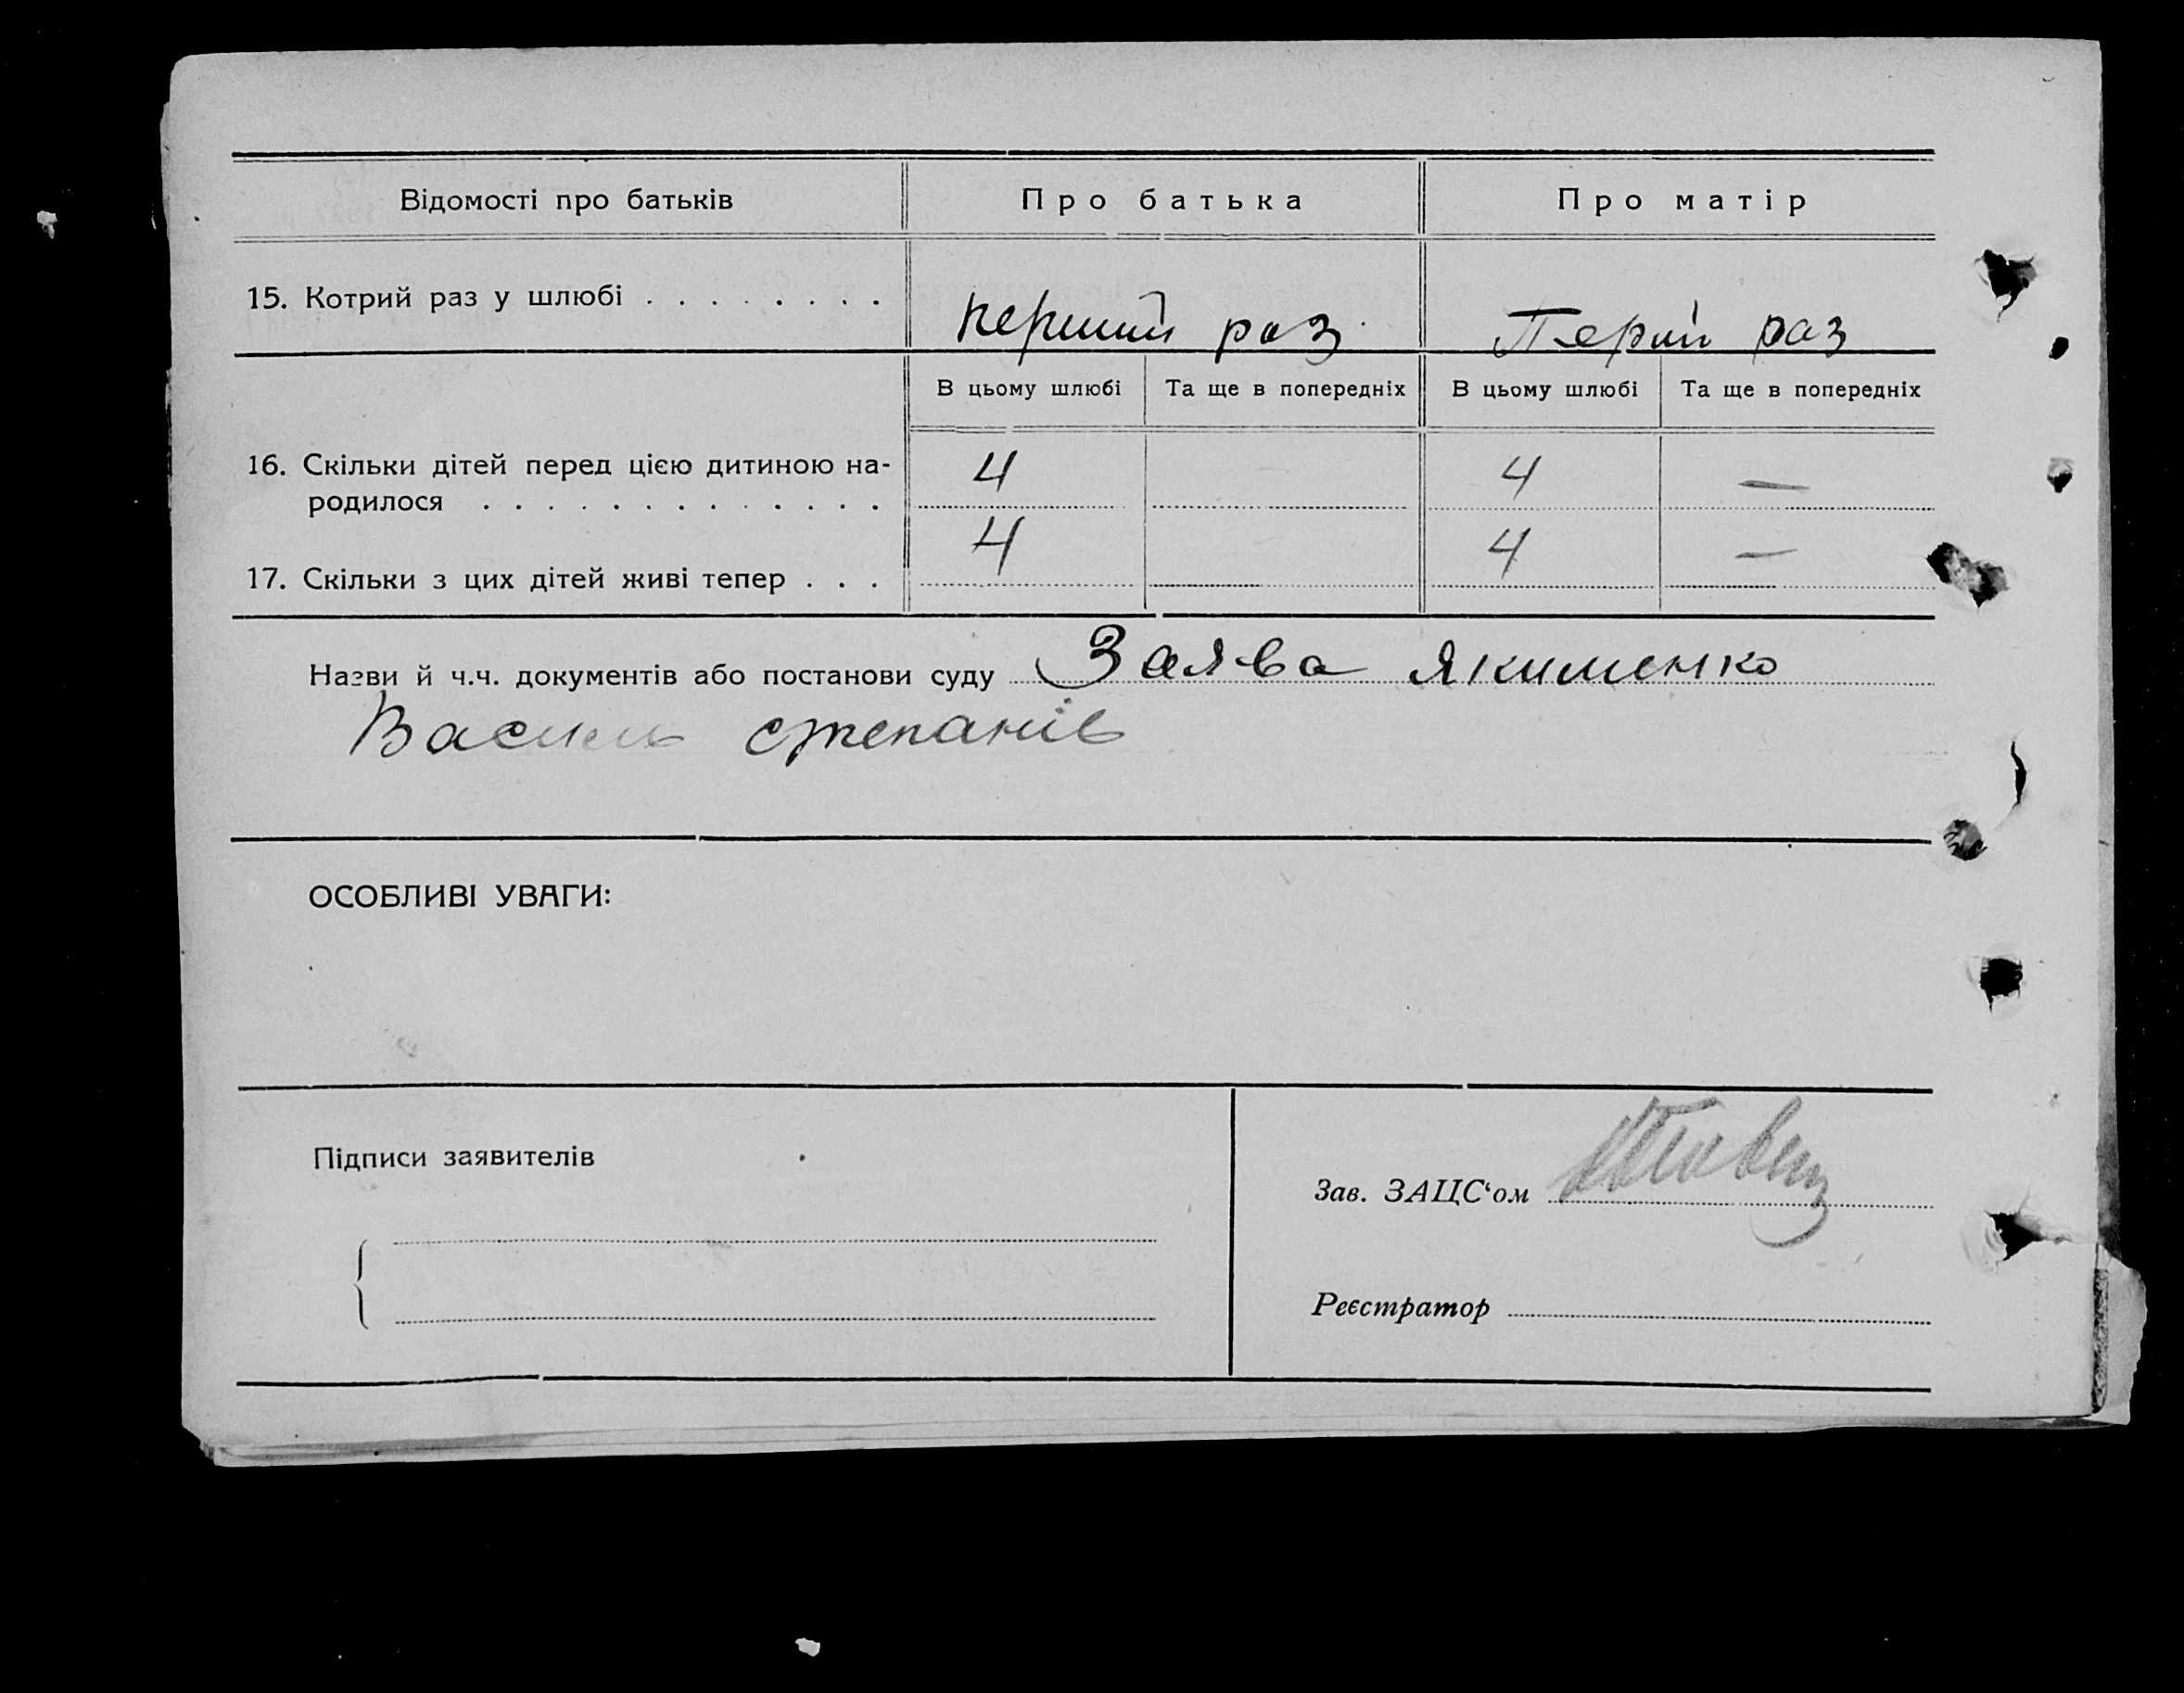 Відомості про батьків Про батька Про матір
15. Котрий раз у шлюбі . . . . . . . . перший раз Перий раз
В цьому шлюбі Та ще в попередніх В цьому шлюбі Та ще в попередніх
16. Скільки дітей перед цією дитиною на- 4 4 —
родилося . . . . . . . . . . . . .
17. Скільки з цих дітей живі тепер . . . 4 4 —
Назви й ч.ч. документів або постанови суду Заява Якименко
Василь степанів
ОСОБЛИВІ УВАГИ:
Підписи заявителів
Зав. ЗАЦС‘ом
Реєстратор